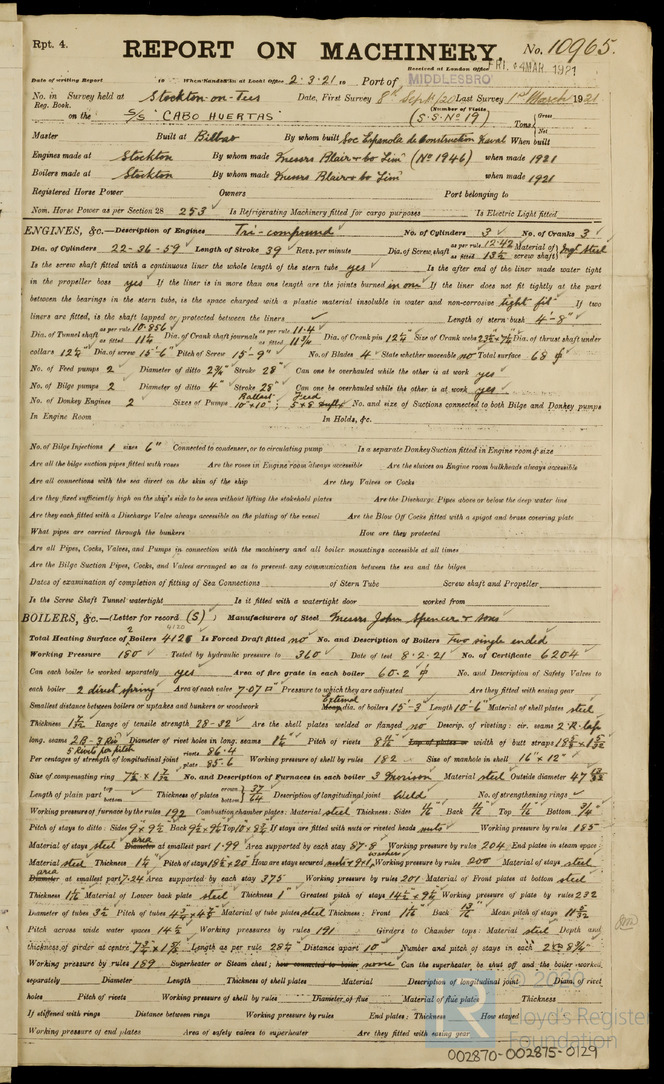 Rpt. 4.
REPORT ON MACHINERY. No. 10965.
Received at London Office FRI. 4 MAR. 1921
Date of writing Report 19 When handed in at Local Office 2.3.21 19 Port of MIDDLESBRO
No. in Survey held at Stockton-on-Tees Date, First Survey 8th Sept 1920 Last Survey 1st March 1921
Reg. Book. (Number of Visits )
on the S/S "CABO HUERTAS" (S.S. No 19) Tons Gross Net
Master Built at Bilbao By whom built Soc Espanola de Construction Naval When built
Engines made at Stockton By whom made Messrs Blair & Co Lim (No 1946) when made 1921
Boilers made at Stockton By whom made Messrs Blair & Co Lim when made 1921
Registered Horse Power Owners Port belonging to
Nom. Horse Power as per Section 28 253 Is Refrigerating Machinery fitted for cargo purposes Is Electric Light fitted
ENGINES, &c.—Description of Engines Tri-compound No. of Cylinders 3 No. of Cranks 3
Dia. of Cylinders 22-36-59 Length of Stroke 39 Revs. per minute Dia. of Screw shaft as per rule 12.42 as fitted 13½ Material of screw shaft Ingt Steel
Is the screw shaft fitted with a continuous liner the whole length of the stern tube yes Is the after end of the liner made water tight
in the propeller boss yes If the liner is in more than one length are the joints burned in one If the liner does not fit tightly at the part
between the bearings in the stern tube, is the space charged with a plastic material insoluble in water and non-corrosive tight fit If two
liners are fitted, is the shaft lapped or protected between the liners Length of stern bush 4'-8"
Dia. of Tunnel shaft as per rule 10.856 as fitted 11¼ Dia. of Crank shaft journals as per rule 11.4 as fitted 11¾ Dia. of Crank pin 12¼ Size of Crank webs Dia. of thrust shaft under
collars 12¼ Dia. of screw 15'-6" Pitch of Screw 15'-9" No. of Blades 4 State whether moveable no Total surface 68
No. of Feed pumps 2 Diameter of ditto Stroke 28" Can one be overhauled while the other is at work yes
No. of Bilge pumps 2 Diameter of ditto 4" Stroke 28" Can one be overhauled while the other is at work yes
No. of Donkey Engines 2 Sizes of Pumps Ballast 10"x10"; Feed No. and size of Suctions connected to both Bilge and Donkey pumps
In Engine Room In Holds, &c.
No. of Bilge Injections 1 sizes 6" Connected to condenser, or to circulating pump Is a separate Donkey Suction fitted in Engine room & size
Are all the bilge suction pipes fitted with roses Are the roses in Engine room always accessible Are the sluices on Engine room bulkheads always accessible
Are all connections with the sea direct on the skin of the ship Are they Valves or Cocks
Are they fixed sufficiently high on the ship's side to be seen without lifting the stokehold plates Are the Discharge Pipes above or below the deep water line
Are they each fitted with a Discharge Valve always accessible on the plating of the vessel Are the Blow Off Cocks fitted with a spigot and brass covering plate
What pipes are carried through the bunkers How are they protected
Are all Pipes, Cocks, Valves, and Pumps in connection with the machinery and all boiler mountings accessible at all times
Are the Bilge Suction Pipes, Cocks, and Valves arranged so as to prevent any communication between the sea and the bilges
Dates of examination of completion of fitting of Sea Connections of Stern Tube Screw shaft and Propeller
Is the Screw Shaft Tunnel watertight Is it fitted with a watertight door worked from
BOILERS, &c.—(Letter for record (S)) Manufacturers of Steel Messrs John Spencer & Sons
Total Heating Surface of 2 Boilers 4126 Is Forced Draft fitted no No. and Description of Boilers Two single ended
Working Pressure 180 Tested by hydraulic pressure to 360 Date of test 8.2.21 No. of Certificate 6204
Can each boiler be worked separately yes Area of fire grate in each boiler 60.2 No. and Description of Safety Valves to
each boiler 2 direct spring Area of each valve 7.07 Pressure to which they are adjusted Are they fitted with easing gear
Smallest distance between boilers or uptakes and bunkers or woodwork External dia. of boilers 15'-3 Length 10'-6" Material of shell plates steel
Thickness Range of tensile strength 28-32 Are the shell plates welded or flanged no Descrip. of riveting: cir. seams 2.R.lap
long. seams Diameter of rivet holes in long. seams Pitch of rivets Lap of plates or width of butt straps
5 Rivets per pitch
Per centages of strength of longitudinal joint rivets 86.4 plate 85.6 Working pressure of shell by rules 182 Size of manhole in shell 16" x 12"
Size of compensating ring No. and Description of Furnaces in each boiler 3 Morison Material steel Outside diameter 47
Length of plain part top bottom Thickness of plates crown bottom 37/64 Description of longitudinal joint weld No. of strengthening rings
Working pressure of furnace by the rules 192 Combustion chamber plates: Material steel Thickness: Sides 11/16 Back 11/16 Top 11/16 Bottom 3/4"
Pitch of stays to ditto: Sides 9 x 9½ Back Top If stays are fitted with nuts or riveted heads nuts Working pressure by rules 185
Material of stays steel area at smallest part 1.99 Area supported by each stay 87.8 Working pressure by rules 204 End plates in steam space
Material steel Thickness Pitch of stays 18½ x 20 How are stays secured nuts & washers Working pressure by rules 200 Material of stays steel
area at smallest part 7.24 Area supported by each stay 375 Working pressure by rules 201 Material of Front plates at bottom steel
Thickness Material of Lower back plate steel Thickness 1" Greatest pitch of stays Working pressure of plate by rules 232
Diameter of tubes Pitch of tubes Material of tube plates steel Thickness: Front Back 13/16 Mean pitch of stays
Pitch across wide water spaces 14½ Working pressures by rules 191 Girders to Chamber tops: Material steel Depth and
thickness of girder at centre Length as per rule 28¼ Distance apart 10 Number and pitch of stays in each
Working pressure by rules 189 Superheater or Steam chest; how connected to boiler none Can the superheater be shut off and the boiler worked
separately Diameter Length Thickness of shell plates Material Description of longitudinal joint Diam. of rivet
holes Pitch of rivets Working pressure of shell by rules Diameter of flue Material of flue plates Thickness
If stiffened with rings Distance between rings Working pressure by rules End plates: Thickness How stayed
Working pressure of end plates Area of safety valves to superheater Are they fitted with easing gear
© 2020
Lloyd's Register
Foundation
002870-002875-0129